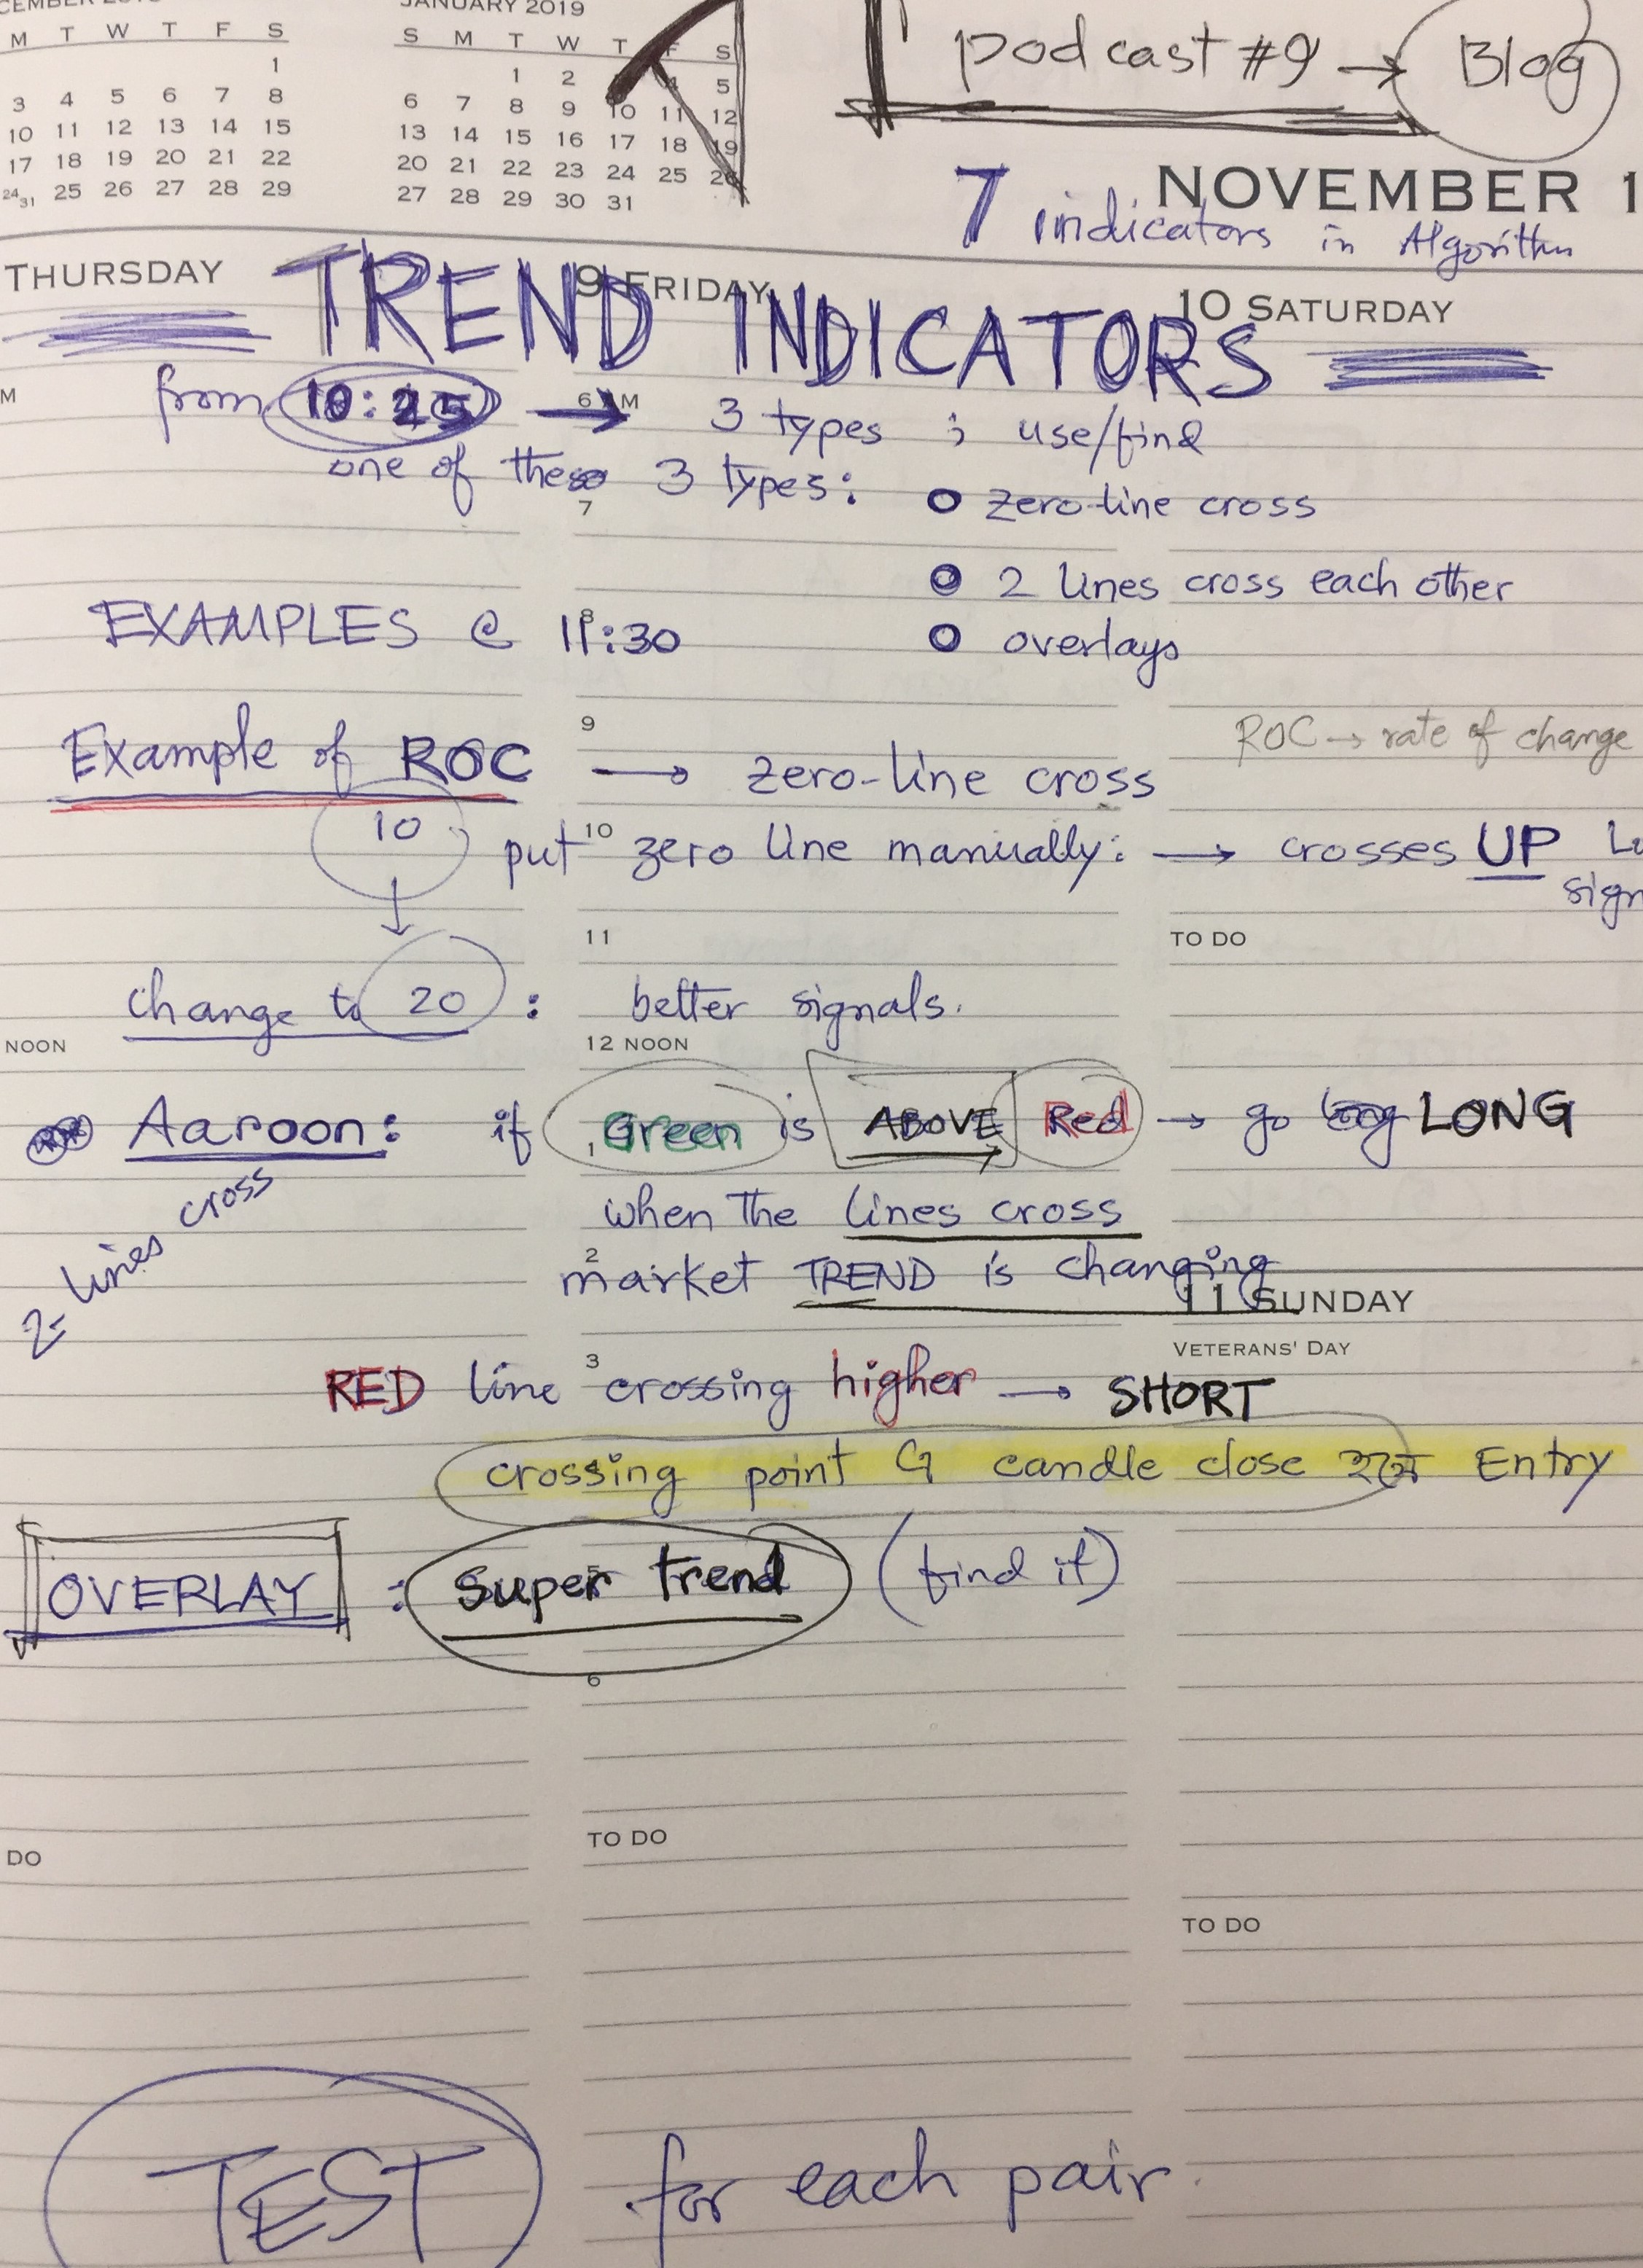 JANUARY 2019
M T W T F S
1
3 4 5 6 7 8
10 11 12 13 14 15
17 18 19 20 21 22
24 31 25 26 27 28 29
S M T W T F S
1 2 4 5
6 7 8 9 10 11 12
13 14 15 16 17 18 19
20 21 22 23 24 25 26
27 28 29 30 31
podcast #9 → Blog
NOVEMBER 1
7 indicators in Algorithm
THURSDAY 9 FRIDAY 10 SATURDAY
TREND INDICATORS
from 10:25 → 3 types ; use/find
6 AM
one of these 3 types: zero-line cross
7
2 lines cross each other
EXAMPLES @ 11:30 overlays
8
9
ROC → rate of change
Example of ROC → zero-line cross
10 put zero line manually: → crosses UP
10
11
TO DO
change to 20 : better signals.
NOON 12 NOON
Aaroon: if Green is ABOVE Red → go long LONG
1
2 lines cross
when the lines cross
2
market TREND is changing
11 SUNDAY
VETERANS' DAY
3
RED line crossing higher → SHORT
crossing point G candle close হলে Entry
OVERLAY : super trend (find it)
6
DO
TO DO
TO DO
TEST for each pair.